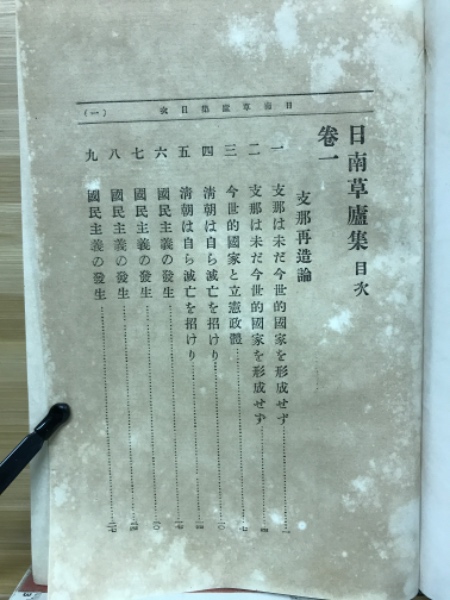 日南草廬集目次
(一)
日南草廬集 目次
卷一
支那再造論
一 支那は未だ今世的國家を形成せず
二 支那は未だ今世的國家を形成せず
三 今世的國家と立憲政體
四 清朝は自ら滅亡を招けり
五 清朝は自ら滅亡を招けり
六 國民主義の發生
七 國民主義の發生
八 國民主義の發生
九 國民主義の發生